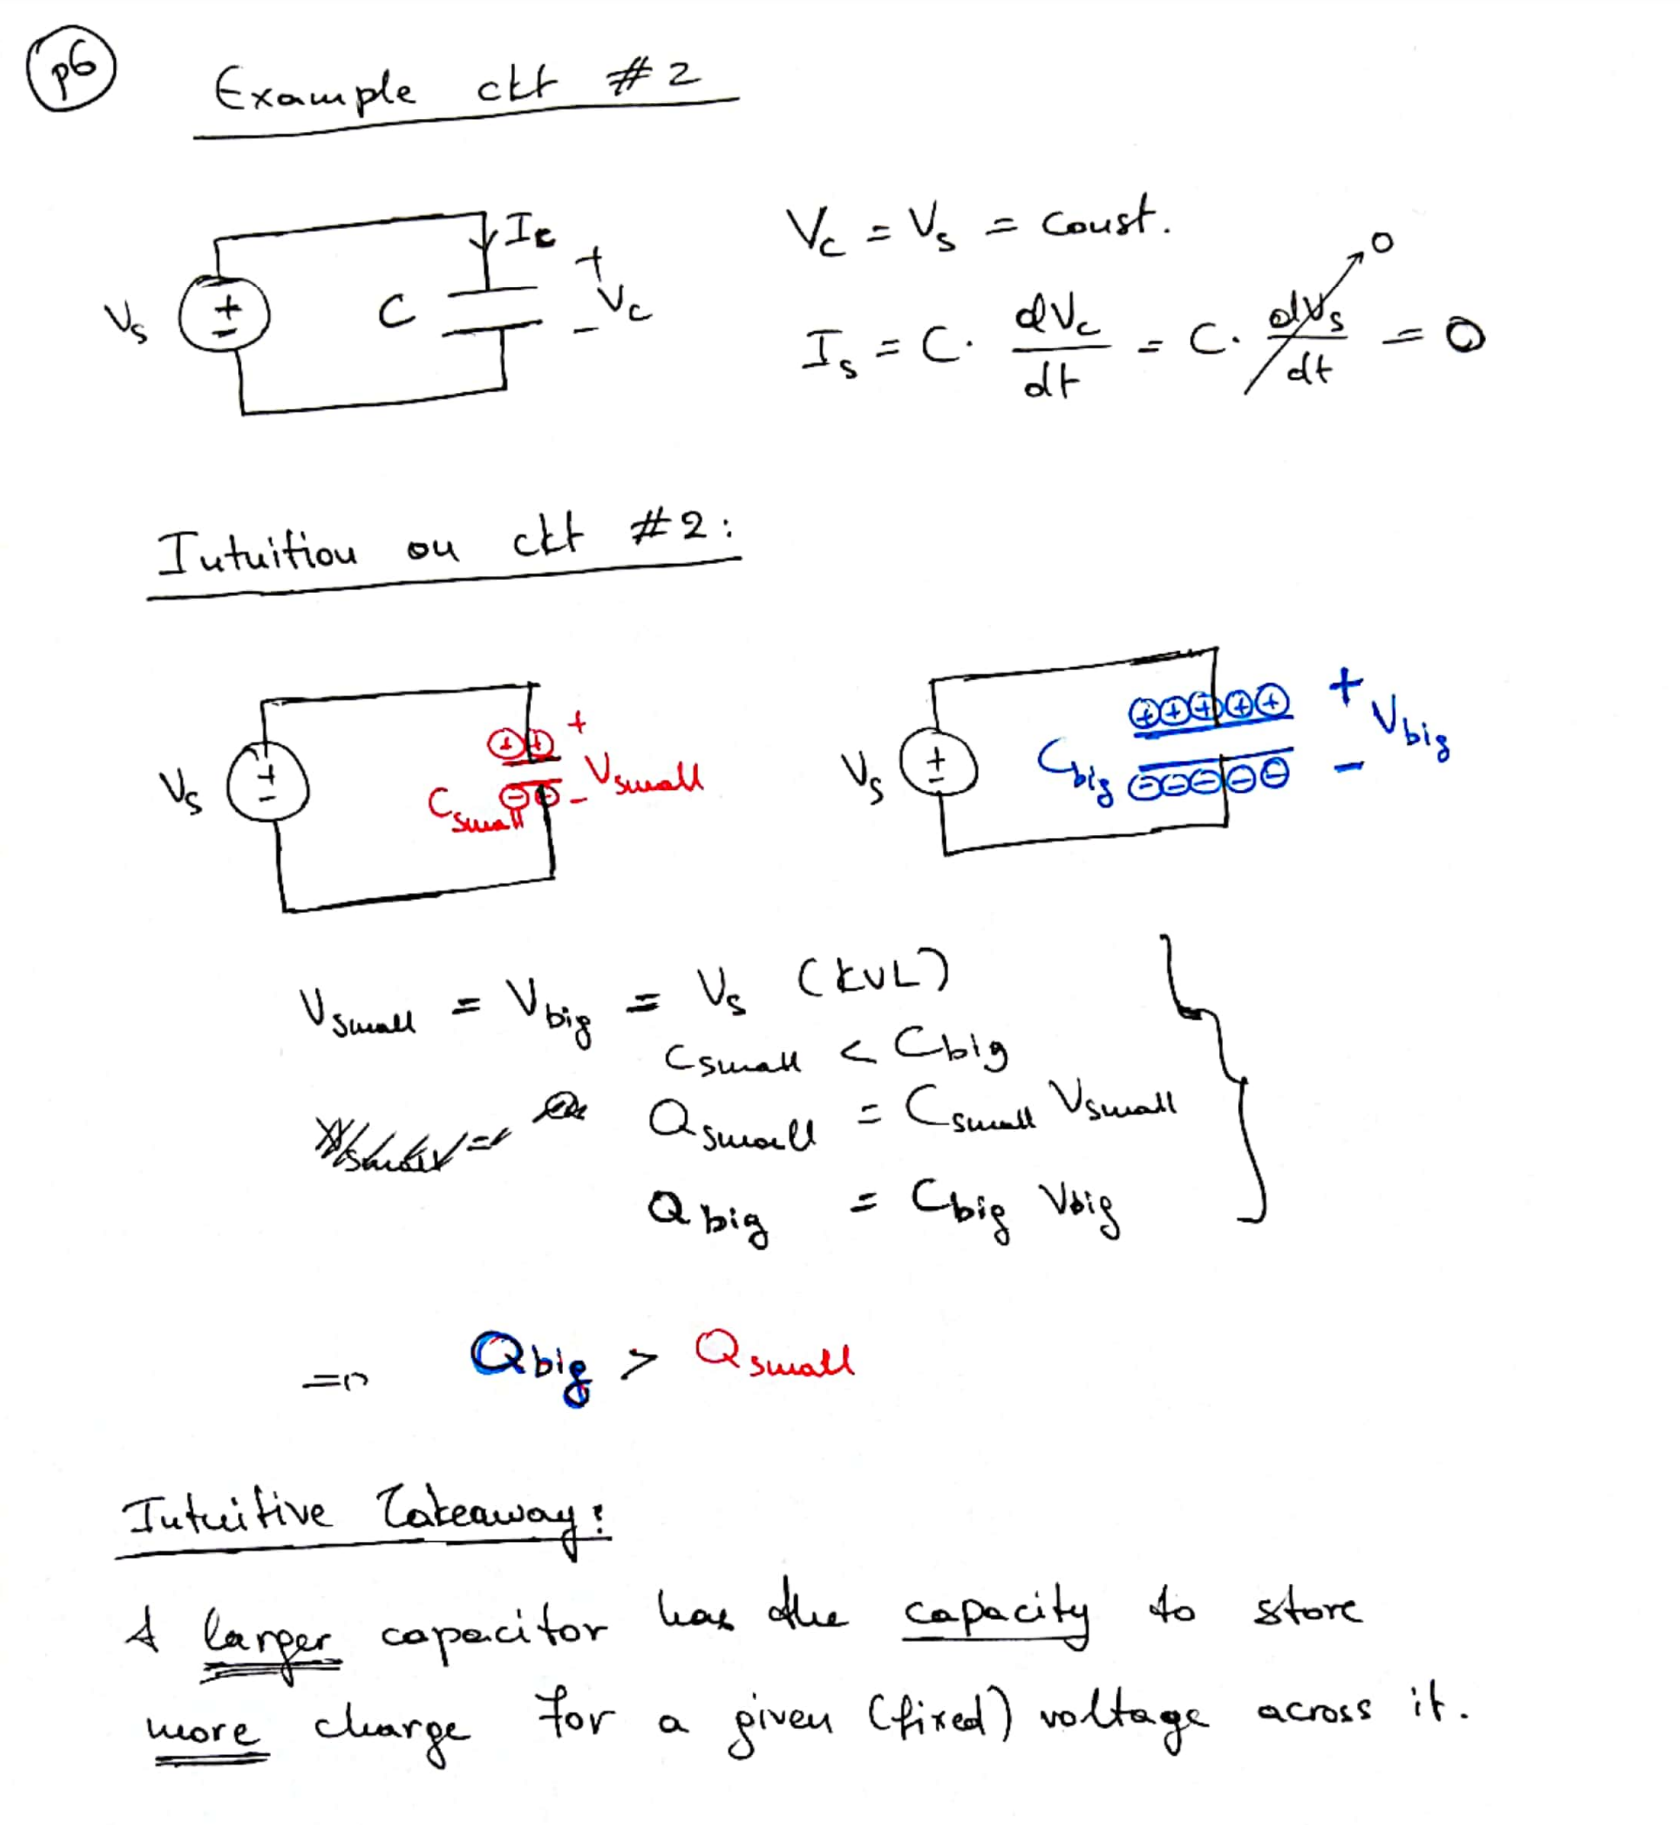 p6
Example ckt #2
Vs + - C Ic + Vc -
Vc = Vs = const.
Is = C · dVc/dt = C · dVs/dt → 0 = 0
Intuition on ckt #2:
Vs + - Csmall + + - - + Vsmall -
Vs + - Cbig + + + + + - - - - - + Vbig -
Vsmall = Vbig = Vs (KVL)
Csmall < Cbig
Qsmall = Csmall Vsmall
Qbig = Cbig Vbig
⇒ Qbig > Qsmall
Intuitive Takeaway:
A larger capacitor has the capacity to store
more charge for a given (fixed) voltage across it.